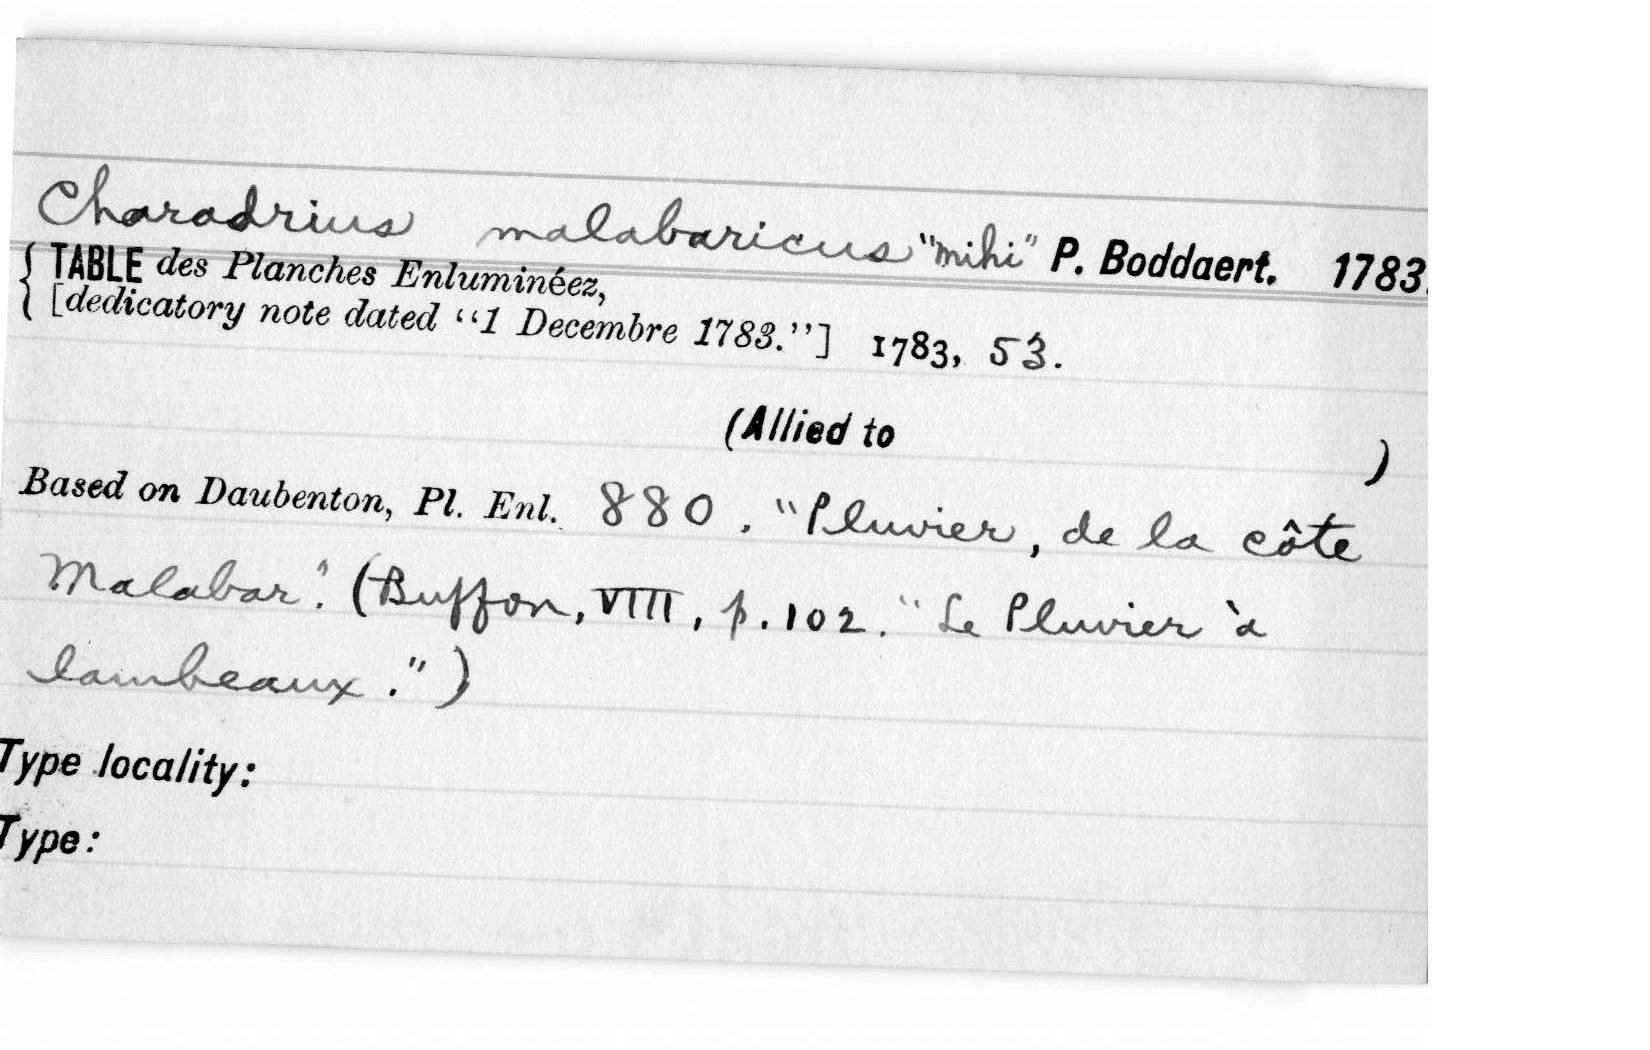 Charadrius malabaricus "mihi" P. Boddaert. 1783.
{ TABLE des Planches Enluminéez,
[dedicatory note dated “1 Decembre 1783.”] 1783, 53.
(Allied to )
Based on Daubenton, Pl. Enl. 880. "Pluvier, de la côte
Malabar". (Buffon, VIII, p. 102. "Le Pluvier à
lambeaux.")
Type locality:
Type: